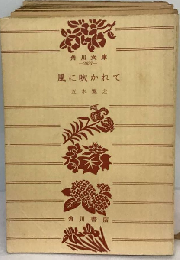 角川文庫
風に吹かれて
五木寛之
角川書店